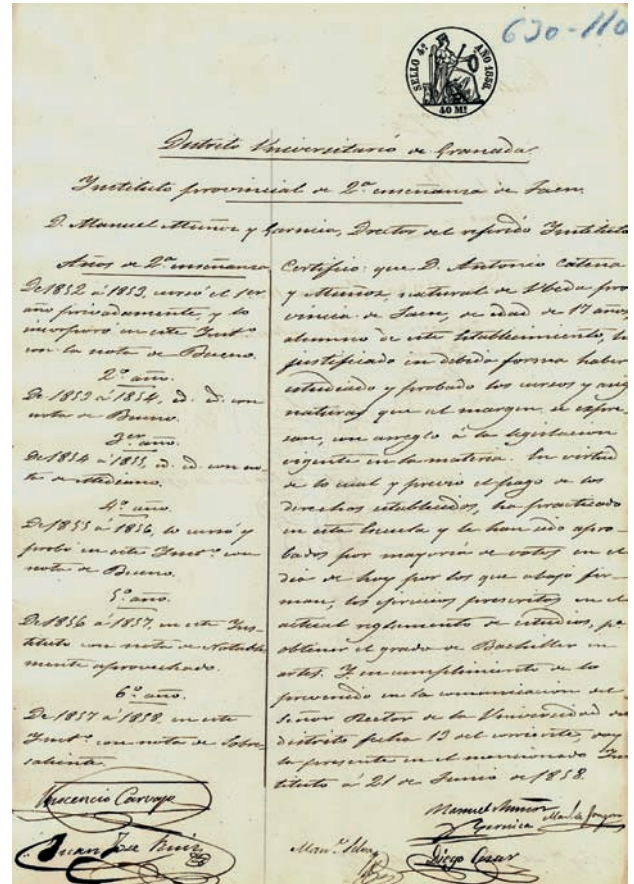 630-110
SELLO 4º AÑO 1858.
40 Ms
Distrito Universitario de Granada.
Instituto provincial de 2ª enseñanza de Jaen.
D. Manuel Muñoz y Garnica, Director del referido Instituto
Años de 2ª enseñanza
De 1852 á 1853, cursó el 1er
año privadamente, y lo
incorporó en este Instº
con la nota de Bueno.
2º año.
De 1853 á 1854, id. id. con
nota de Bueno.
3er año.
De 1854 á 1855, id. id. con no-
ta de Mediano.
4º año.
De 1855 á 1856, lo cursó y
probó en este Instº con
nota de Bueno.
5º año.
De 1856 á 1857, en este Ins-
tituto con nota de Notable
mente aprovechado.
6º año.
De 1857 á 1858, en este
Instº con nota de Sobre
saliente.
Certifico: que D. Antonio Catena
y Muñoz, natural de Ubeda pro
vincia de Jaen, de edad de 17 años,
alumno de este Establecimiento, ha
justificado en debida forma haber
estudiado y probado los cursos y asig
naturas que al margen se expre
san, con arreglo á la legislacion
vigente en la materia. En virtud
de lo cual y previo el pago de los
derechos establecidos, ha practicado
en esta Escuela y le han sido apro-
bados por mayoría de votos en el
dia de hoy por los que abajo fir-
man, los ejercicios prescritos en el
actual reglamento de estudios, pª
obtener el grado de Bachiller en
artes. Y en cumplimiento de lo
prevenido en la comunicacion del
Señor Rector de la Universidad del
distrito fecha 13 del corriente, doy
la presente en el mencionado Ins
tituto á 21 de Junio de 1858.
Inocencio Carvajo
Manuel Muñoz
Garnica
Juan José Ruiz
Diego